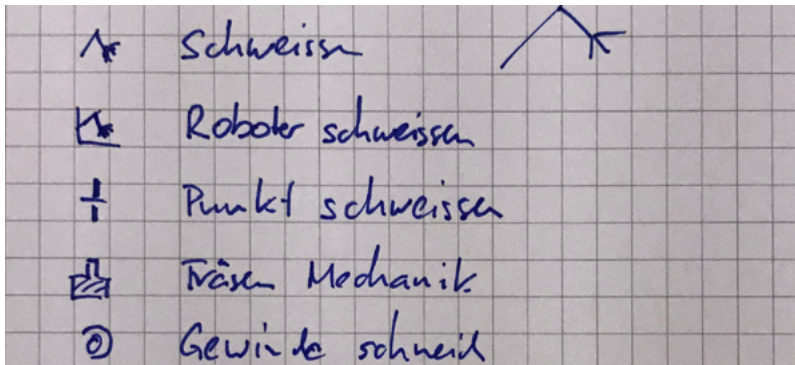 Schweissen
Roboter schweissen
Punkt schweissen
Fräsen Mechanik
Gewinde schneid